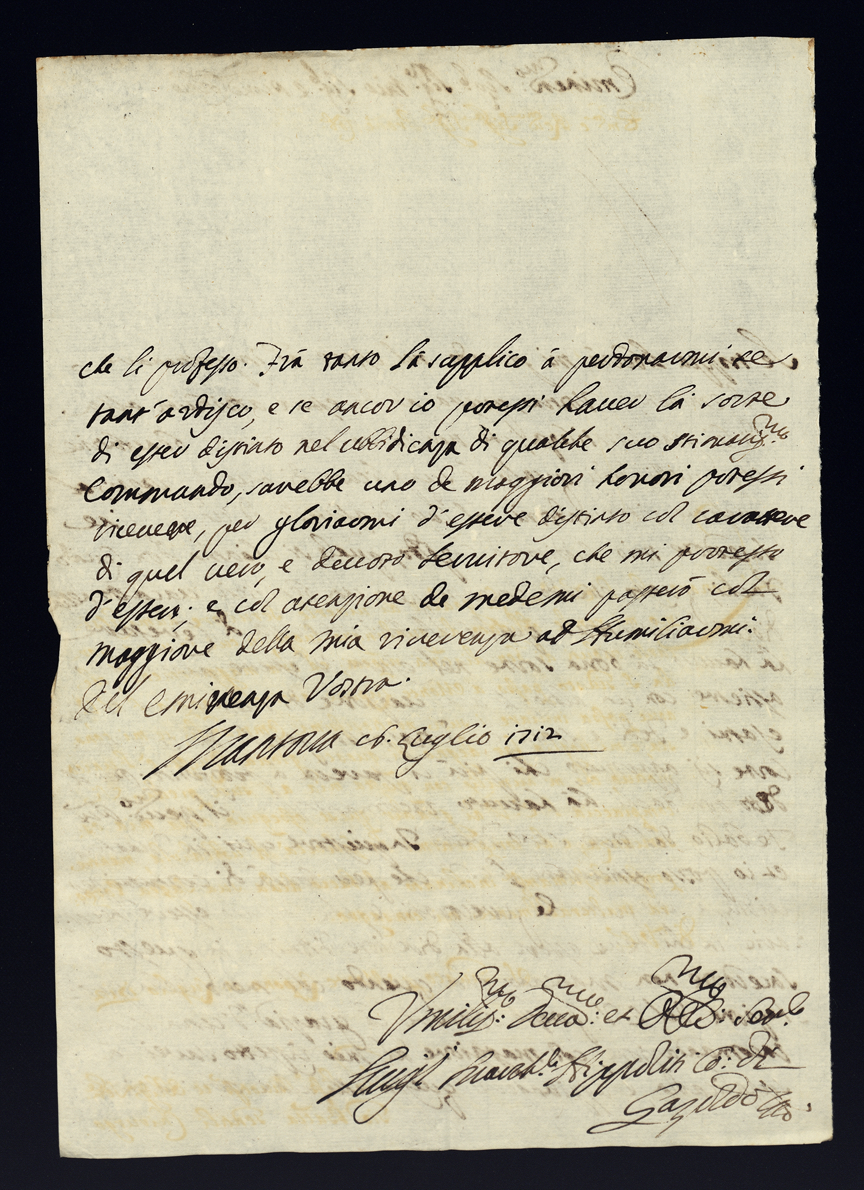 che li professo. Frà tanto la supplico à perdonarmi se
tant'ardisco, e se ancor io potessi haver la sorte
di esser distinto nel ubbidienza di qualche suo stimatiss.mo
Commando, sarebbe uno de maggiori honori potessi
ricevere, per gloriarmi d'essere distinto col carattere
di quel vero, e devoto servitore, che mi protesto
d'esser; e col atenzione de medemi passerò col
maggiore della mia riverenza ad Humiliarmi.
Del Eminenza Vostra.
Mantova 26. Luglio 1712
Vmilis.mo Devo.mo: et Obb.mo Ser.
Luigi Hippoliti C: di
Gazoldo